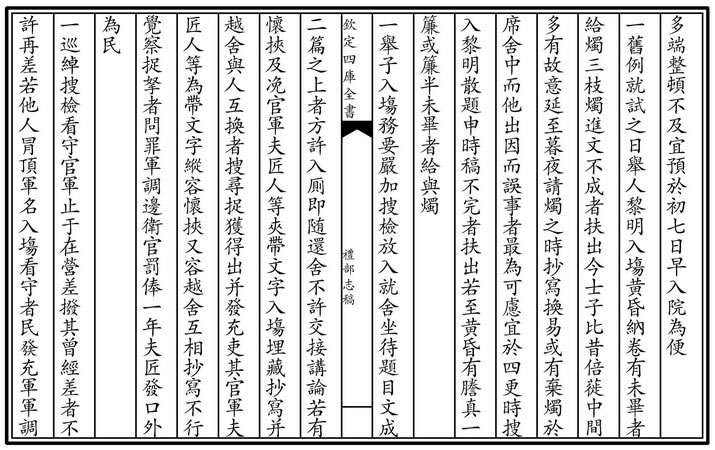 多端整頓不及宜預於初七日早入院為便
一舊例就試之日舉人黎明入場黃昏納卷有未畢者
給燭三枝燭進文不成者扶出今士子比昔倍蓰中間
多有故意延至暮夜請燭之時抄寫換易或有棄燭於
席舍中而他出因而誤事者最為可慮宜於四更時搜
入黎明散題申時稿不完者扶出若至黃昏有謄真一
簾或簾半未畢者給與燭
一舉子入塲務要嚴加搜檢放入就舍坐待題目文成
欽定四庫全書
禮部志稿
二篇之上者方許入厠即隨還舍不許交接講論若有
懷挾及浼官軍夫匠人等夾帶文字入塲埋藏抄寫并
越舍與人互換者搜尋捉獲得出并發充吏其官軍夫
匠人等為帶文字縱容懷挾又容越舍互相抄寫不行
覺察捉拏者問罪軍調邊衛官罰俸一年夫匠發口外
為民
一巡綽搜檢看守官軍止于在營差撥其曾經差者不
許再差若他人冐頂軍名入塲看守者民發充軍軍調